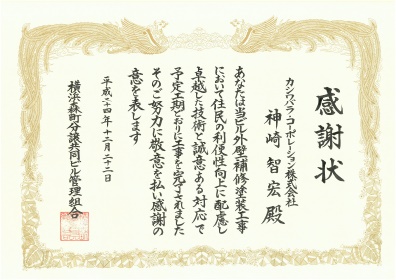 感謝状
カシワバラ・コーポレーション株式会社
神崎智宏殿
あなたは当ビル外壁補修塗装工事
において住民の利便性向上に配慮し
卓越した技術と誠意ある対応で
予定工期どおりに工事を完了されました
そのご努力に敬意を払い感謝の
意を表します
平成二十四年十二月二十二日
横浜森町分譲共同ビル管理組合